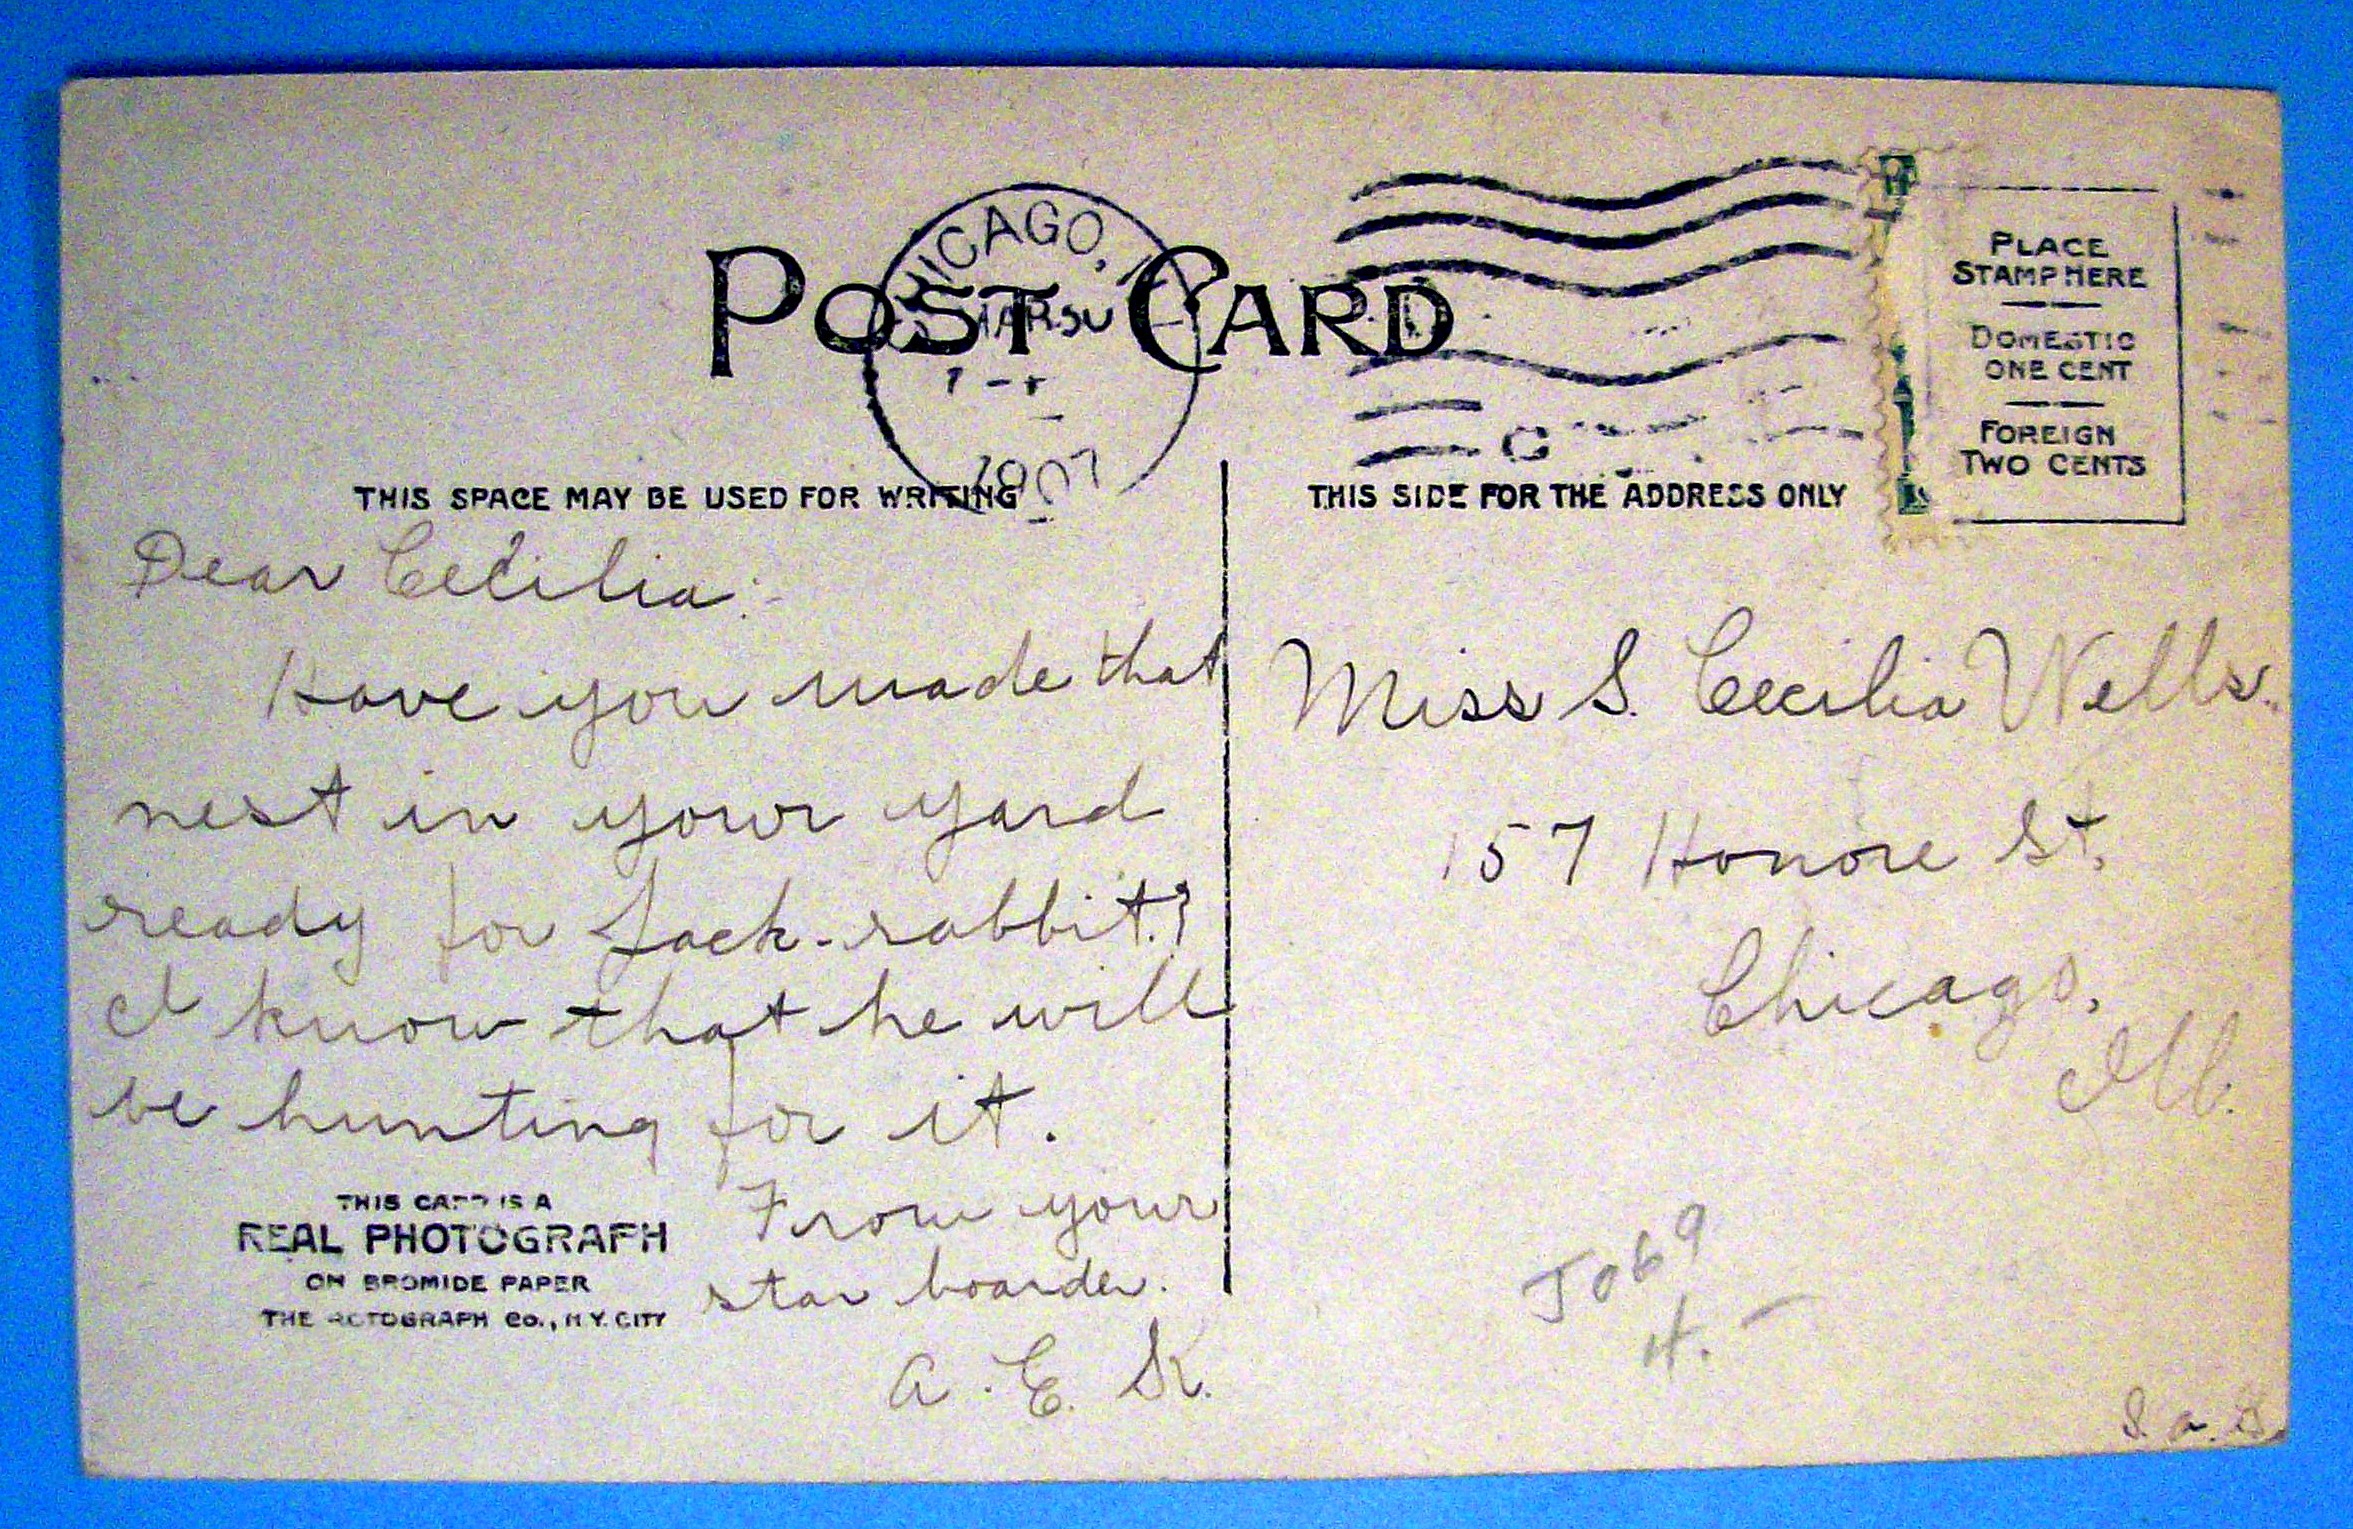 POST CARD
CHICAGO, I
MAR 30
1907
PLACE
STAMP HERE
DOMESTIC
ONE CENT
FOREIGN
TWO CENTS
THIS SPACE MAY BE USED FOR WRITING
THIS SIDE FOR THE ADDRESS ONLY
Dear Cecilia:-
Have you made that
nest in your yard
ready for Jack-rabbit?
I know that he will
be hunting for it.
From your
star boarder.
A. E. K.
THIS CARD IS A
REAL PHOTOGRAPH
ON BROMIDE PAPER
THE ROTOGRAPH CO., N.Y. CITY
Miss S. Cecilia Wells.
157 Honore St.
Chicago,
Ill.
J069
4.-